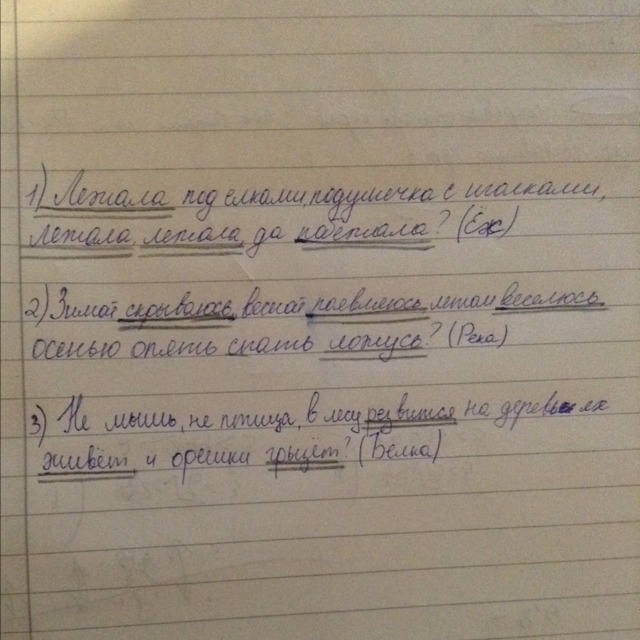 1) Лежала под елками, подушечка с иголками,
Лежала, лежала, да побежала? (Ёж)
2) Зимой скрываюсь, весной появляюсь, летом веселюсь
осенью опять спать ложусь? (Река)
3) Не мышь, не птица, в лесу резвится на деревьях
живёт и орешки грызёт? (Белка)